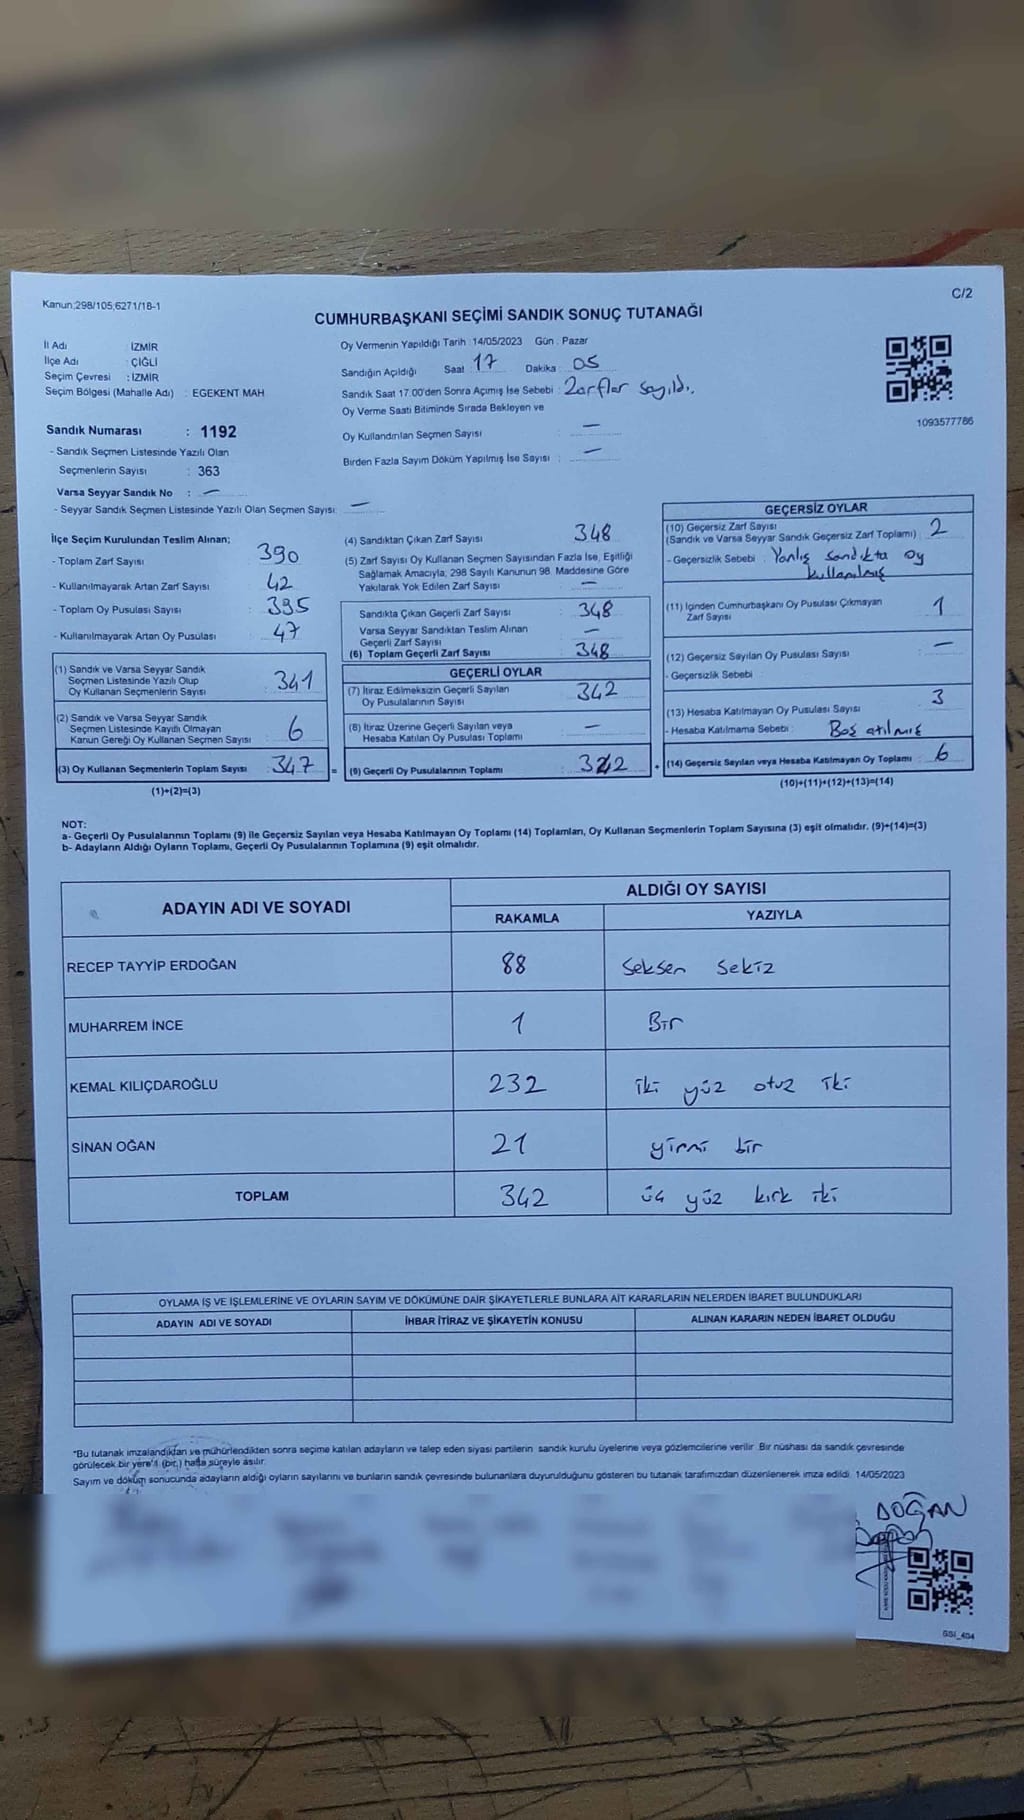 Kanun;298/105;6271/18-1
C/2
CUMHURBAŞKANI SEÇİMİ SANDIK SONUÇ TUTANAĞI
İl Adı : İZMİR
İlçe Adı : ÇİĞLİ
Seçim Çevresi : İZMİR
Seçim Bölgesi (Mahalle Adı) : EGEKENT MAH
Sandık Numarası : 1192
- Sandık Seçmen Listesinde Yazılı Olan
Seçmenlerin Sayısı : 363
Varsa Seyyar Sandık No : —
- Seyyar Sandık Seçmen Listesinde Yazılı Olan Seçmen Sayısı: —
Oy Vermenin Yapıldığı Tarih :14/05/2023 Gün : Pazar
Sandığın Açıldığı Saat : 17 Dakika : 05
Sandık Saat 17.00'den Sonra Açımış İse Sebebi : Zarflar sayıldı.
Oy Verme Saati Bitiminde Sırada Bekleyen ve
Oy Kullandırılan Seçmen Sayısı : —
Birden Fazla Sayım Döküm Yapılmış İse Sayısı : —
1093577786
İlçe Seçim Kurulundan Teslim Alınan;
- Toplam Zarf Sayısı : 390
- Kullanılmayarak Artan Zarf Sayısı : 42
- Toplam Oy Pusulası Sayısı : 395
- Kullanılmayarak Artan Oy Pusulası : 47
(1) Sandık ve Varsa Seyyar Sandık
Seçmen Listesinde Yazılı Olup
Oy Kullanan Seçmenlerin Sayısı : 341
(2) Sandık ve Varsa Seyyar Sandık
Seçmen Listesinde Kayıtlı Olmayan
Kanun Gereği Oy Kullanan Seçmen Sayısı : 6
(3) Oy Kullanan Seçmenlerin Toplam Sayısı : 347
(1)+(2)=(3)
(4) Sandıktan Çıkan Zarf Sayısı : 348
(5) Zarf Sayısı Oy Kullanan Seçmen Sayısından Fazla İse, Eşitliği
Sağlamak Amacıyla; 298 Sayılı Kanunun 98. Maddesine Göre
Yakılarak Yok Edilen Zarf Sayısı : —
Sandıkta Çıkan Geçerli Zarf Sayısı : 348
Varsa Seyyar Sandıktan Teslim Alınan
Geçerli Zarf Sayısı : —
(6) Toplam Geçerli Zarf Sayısı : 348
GEÇERLİ OYLAR
(7) İtiraz Edilmeksizin Geçerli Sayılan
Oy Pusulalarının Sayısı : 342
(8) İtiraz Üzerine Geçerli Sayılan veya
Hesaba Katılan Oy Pusulası Toplamı : —
= (9) Geçerli Oy Pusulalarının Toplamı : 342
GEÇERSİZ OYLAR
(10) Geçersiz Zarf Sayısı
(Sandık ve Varsa Seyyar Sandık Geçersiz Zarf Toplamı) : 2
- Geçersizlik Sebebi : Yanlış sandıkta oy
kullanılmış
(11) İçinden Cumhurbaşkanı Oy Pusulası Çıkmayan
Zarf Sayısı : 1
(12) Geçersiz Sayılan Oy Pusulası Sayısı : —
- Geçersizlik Sebebi :
(13) Hesaba Katılmayan Oy Pusulası Sayısı : 3
- Hesaba Katılmama Sebebi : Boş atılmış
+ (14) Geçersiz Sayılan veya Hesaba Katılmayan Oy Toplamı : 6
(10)+(11)+(12)+(13)=(14)
NOT:
a- Geçerli Oy Pusulalarının Toplamı (9) ile Geçersiz Sayılan veya Hesaba Katılmayan Oy Toplamı (14) Toplamları, Oy Kullanan Seçmenlerin Toplam Sayısına (3) eşit olmalıdır. (9)+(14)=(3)
b- Adayların Aldığı Oyların Toplamı, Geçerli Oy Pusulalarının Toplamına (9) eşit olmalıdır.
ADAYIN ADI VE SOYADI ALDIĞI OY SAYISI
RAKAMLA YAZIYLA
RECEP TAYYİP ERDOĞAN 88 Seksen sekiz
MUHARREM İNCE 1 Bir
KEMAL KILIÇDAROĞLU 232 iki yüz otuz iki
SİNAN OĞAN 21 yirmi bir
TOPLAM 342 üç yüz kırk iki
OYLAMA İŞ VE İŞLEMLERİNE VE OYLARIN SAYIM VE DÖKÜMÜNE DAİR ŞİKAYETLERLE BUNLARA AİT KARARLARIN NELERDEN İBARET BULUNDUKLARI
ADAYIN ADI VE SOYADI İHBAR İTİRAZ VE ŞİKAYETİN KONUSU ALINAN KARARIN NEDEN İBARET OLDUĞU
"Bu tutanak imzalandıktan ve mühürlendikten sonra seçime katılan adayların ve talep eden siyasi partilerin sandık kurulu üyelerine veya gözlemcilerine verilir. Bir nüshası da sandık çevresinde
görülecek bir yere 1 (bir) hafta süreyle asılır.
Sayım ve döküm sonucunda adayların aldığı oyların sayılarını ve bunların sandık çevresinde bulunanlara duyurulduğunu gösteren bu tutanak tarafımızdan düzenlenerek imza edildi. 14/05/2023
DOĞAN
GSI_404